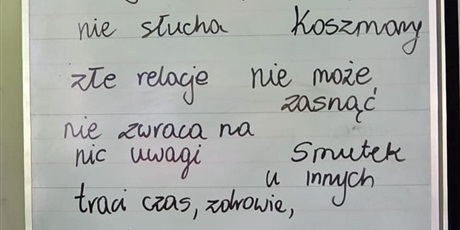 nie słucha Koszmary
złe relacje nie może
zasnąć
nie zwraca na
nic uwagi Smutek
u innych
traci czas, zdrowie,